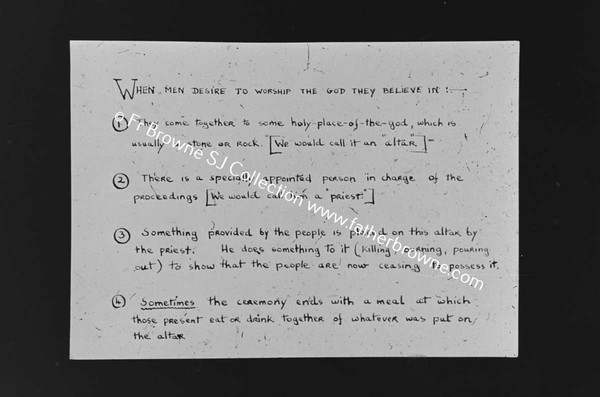 WHEN MEN DESIRE TO WORSHIP THE GOD THEY BELIEVE IN :—
① They come together to some holy-place-of-the-god, which is
usually stone OR ROCK. [We would call it an "altar"]—
② There is a specially appointed person in charge of the
proceedings [We would call him a "priest"]
③ Something provided by the people is placed on this altar by
the priest. He does something to it (killing, burning, pouring
out) to show that the people are now ceasing to possess it.
④ Sometimes the ceremony ends with a meal at which
those present eat or drink together of whatever was put on
the altar
© Fr Browne SJ Collection www.fatherbrowne.com